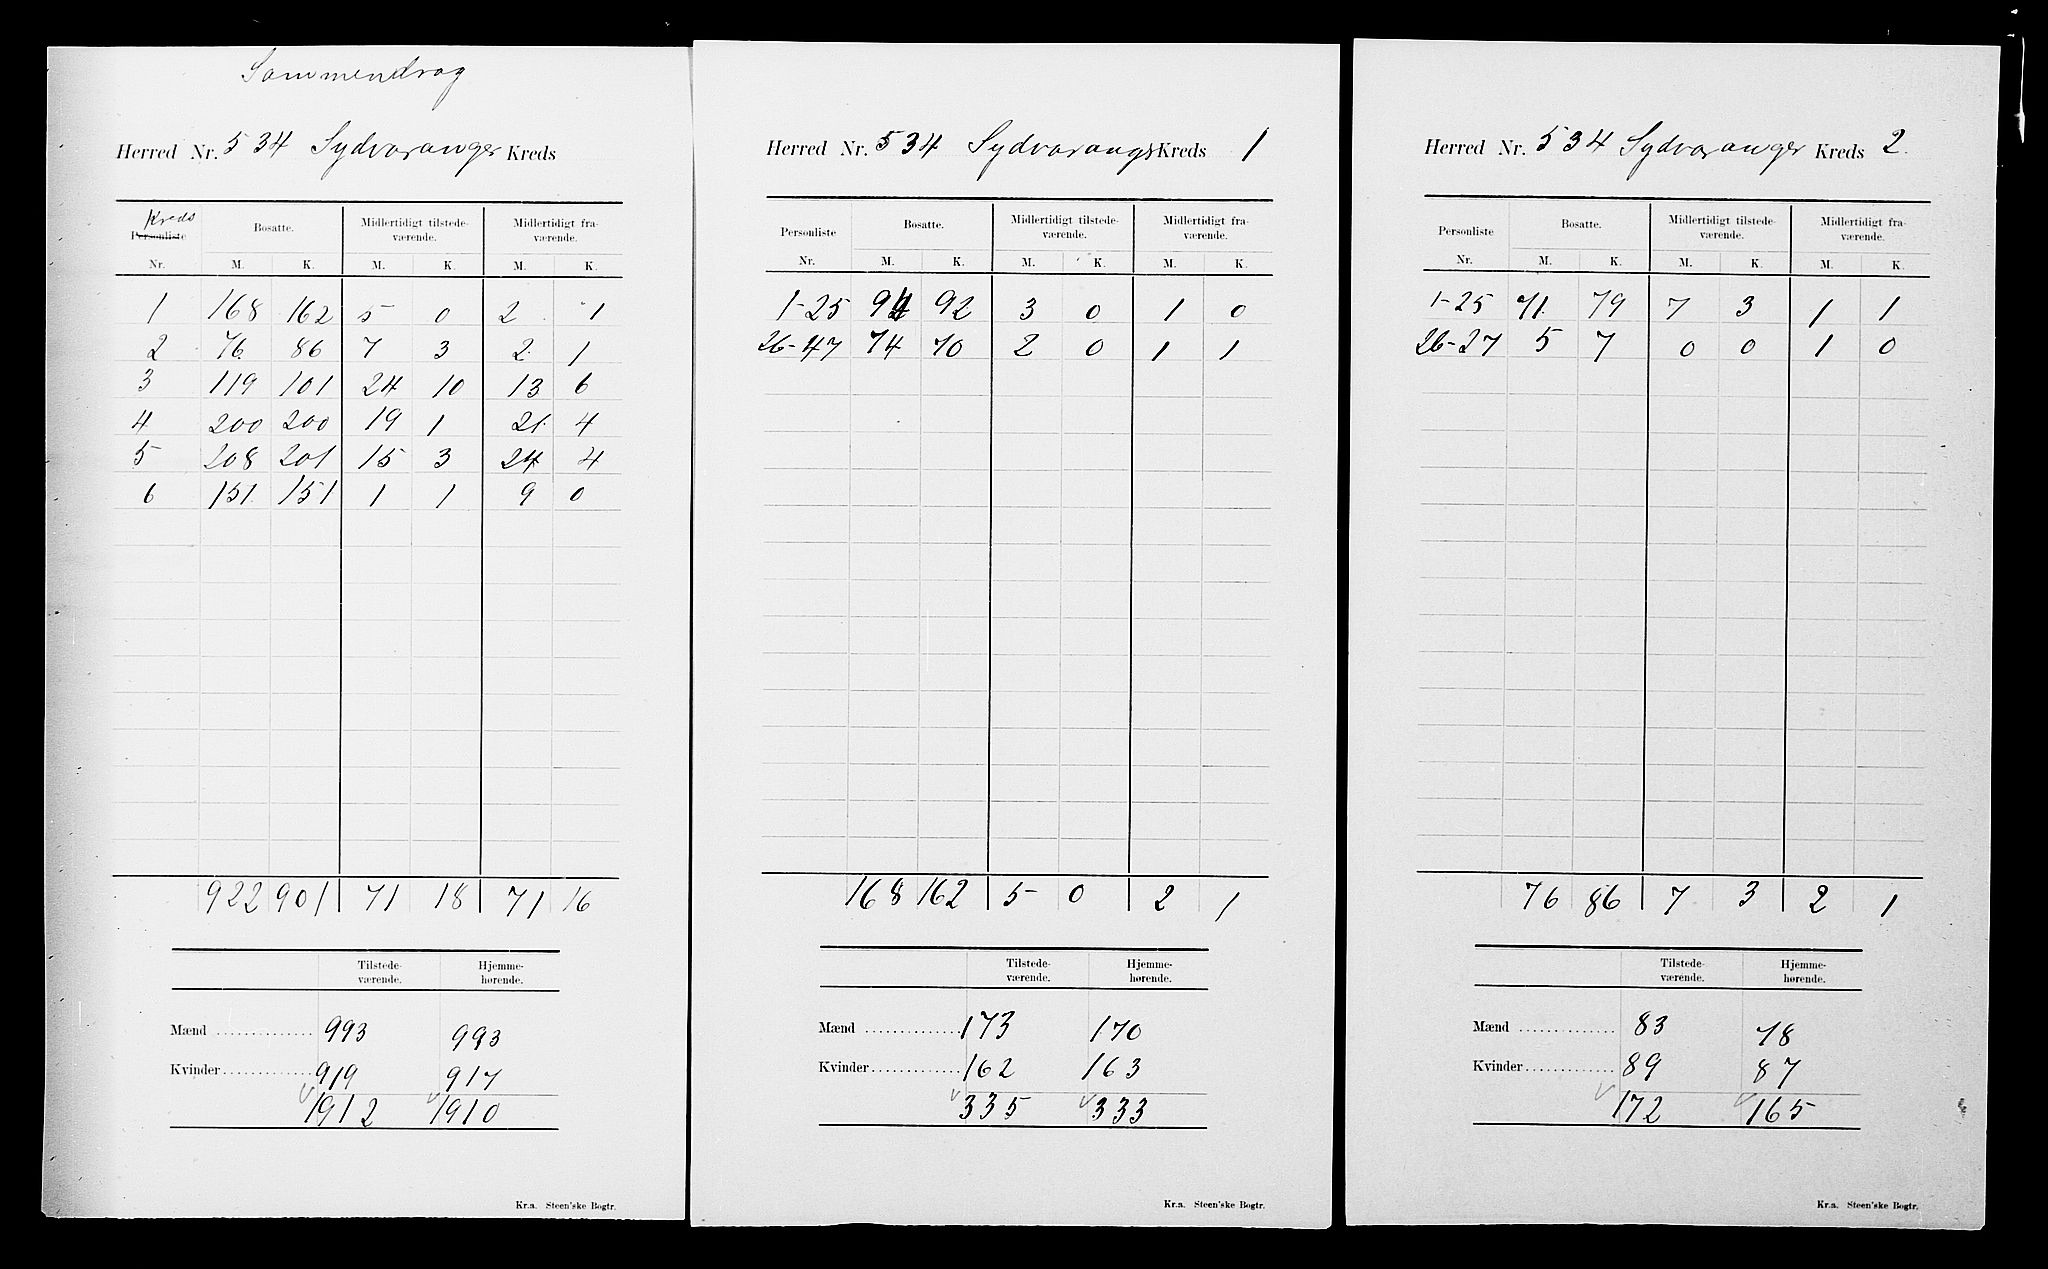 Sammendrag
Herred Nr. 534 Sydvaranger Kreds
Kreds
Personliste Bosatte. Midlertidigt tilstede- Midlertidigt fra-
værende. værende.
Nr. M. K. M. K. M. K.
1 168 162 5 0 2 1
2 76 86 7 3 2 1
3 119 101 24 10 13 6
4 200 200 19 1 21 4
5 208 201 15 3 24 4
6 151 151 1 1 9 0
922 901 71 18 71 16
Tilstede- Hjemme-
værende. hørende.
Mænd 993 993
Kvinder 919 917
1912 1910
Kr.a. Steen'ske Bogtr.
Herred Nr. 534 Sydvarangs Kreds 1
Personliste Bosatte. Midlertidigt tilstede- Midlertidigt fra-
værende. værende.
Nr. M. K. M. K. M. K.
1-25 94 92 3 0 1 0
26-47 74 70 2 0 1 1
168 162 5 0 2 1
Tilstede- Hjemme-
værende. hørende.
Mænd 173 170
Kvinder 162 163
335 333
Kr.a. Steen'ske Bogtr.
Herred Nr. 534 Sydvaranger Kreds 2.
Personliste Bosatte. Midlertidigt tilstede- Midlertidigt fra-
værende. værende.
Nr. M. K. M. K. M. K.
1-25 71 79 7 3 1 1
26-27 5 7 0 0 1 0
76 86 7 3 2 1
Tilstede- Hjemme-
værende. hørende.
Mænd 83 78
Kvinder 89 87
172 165
Kr.a. Steen'ske Bogtr.